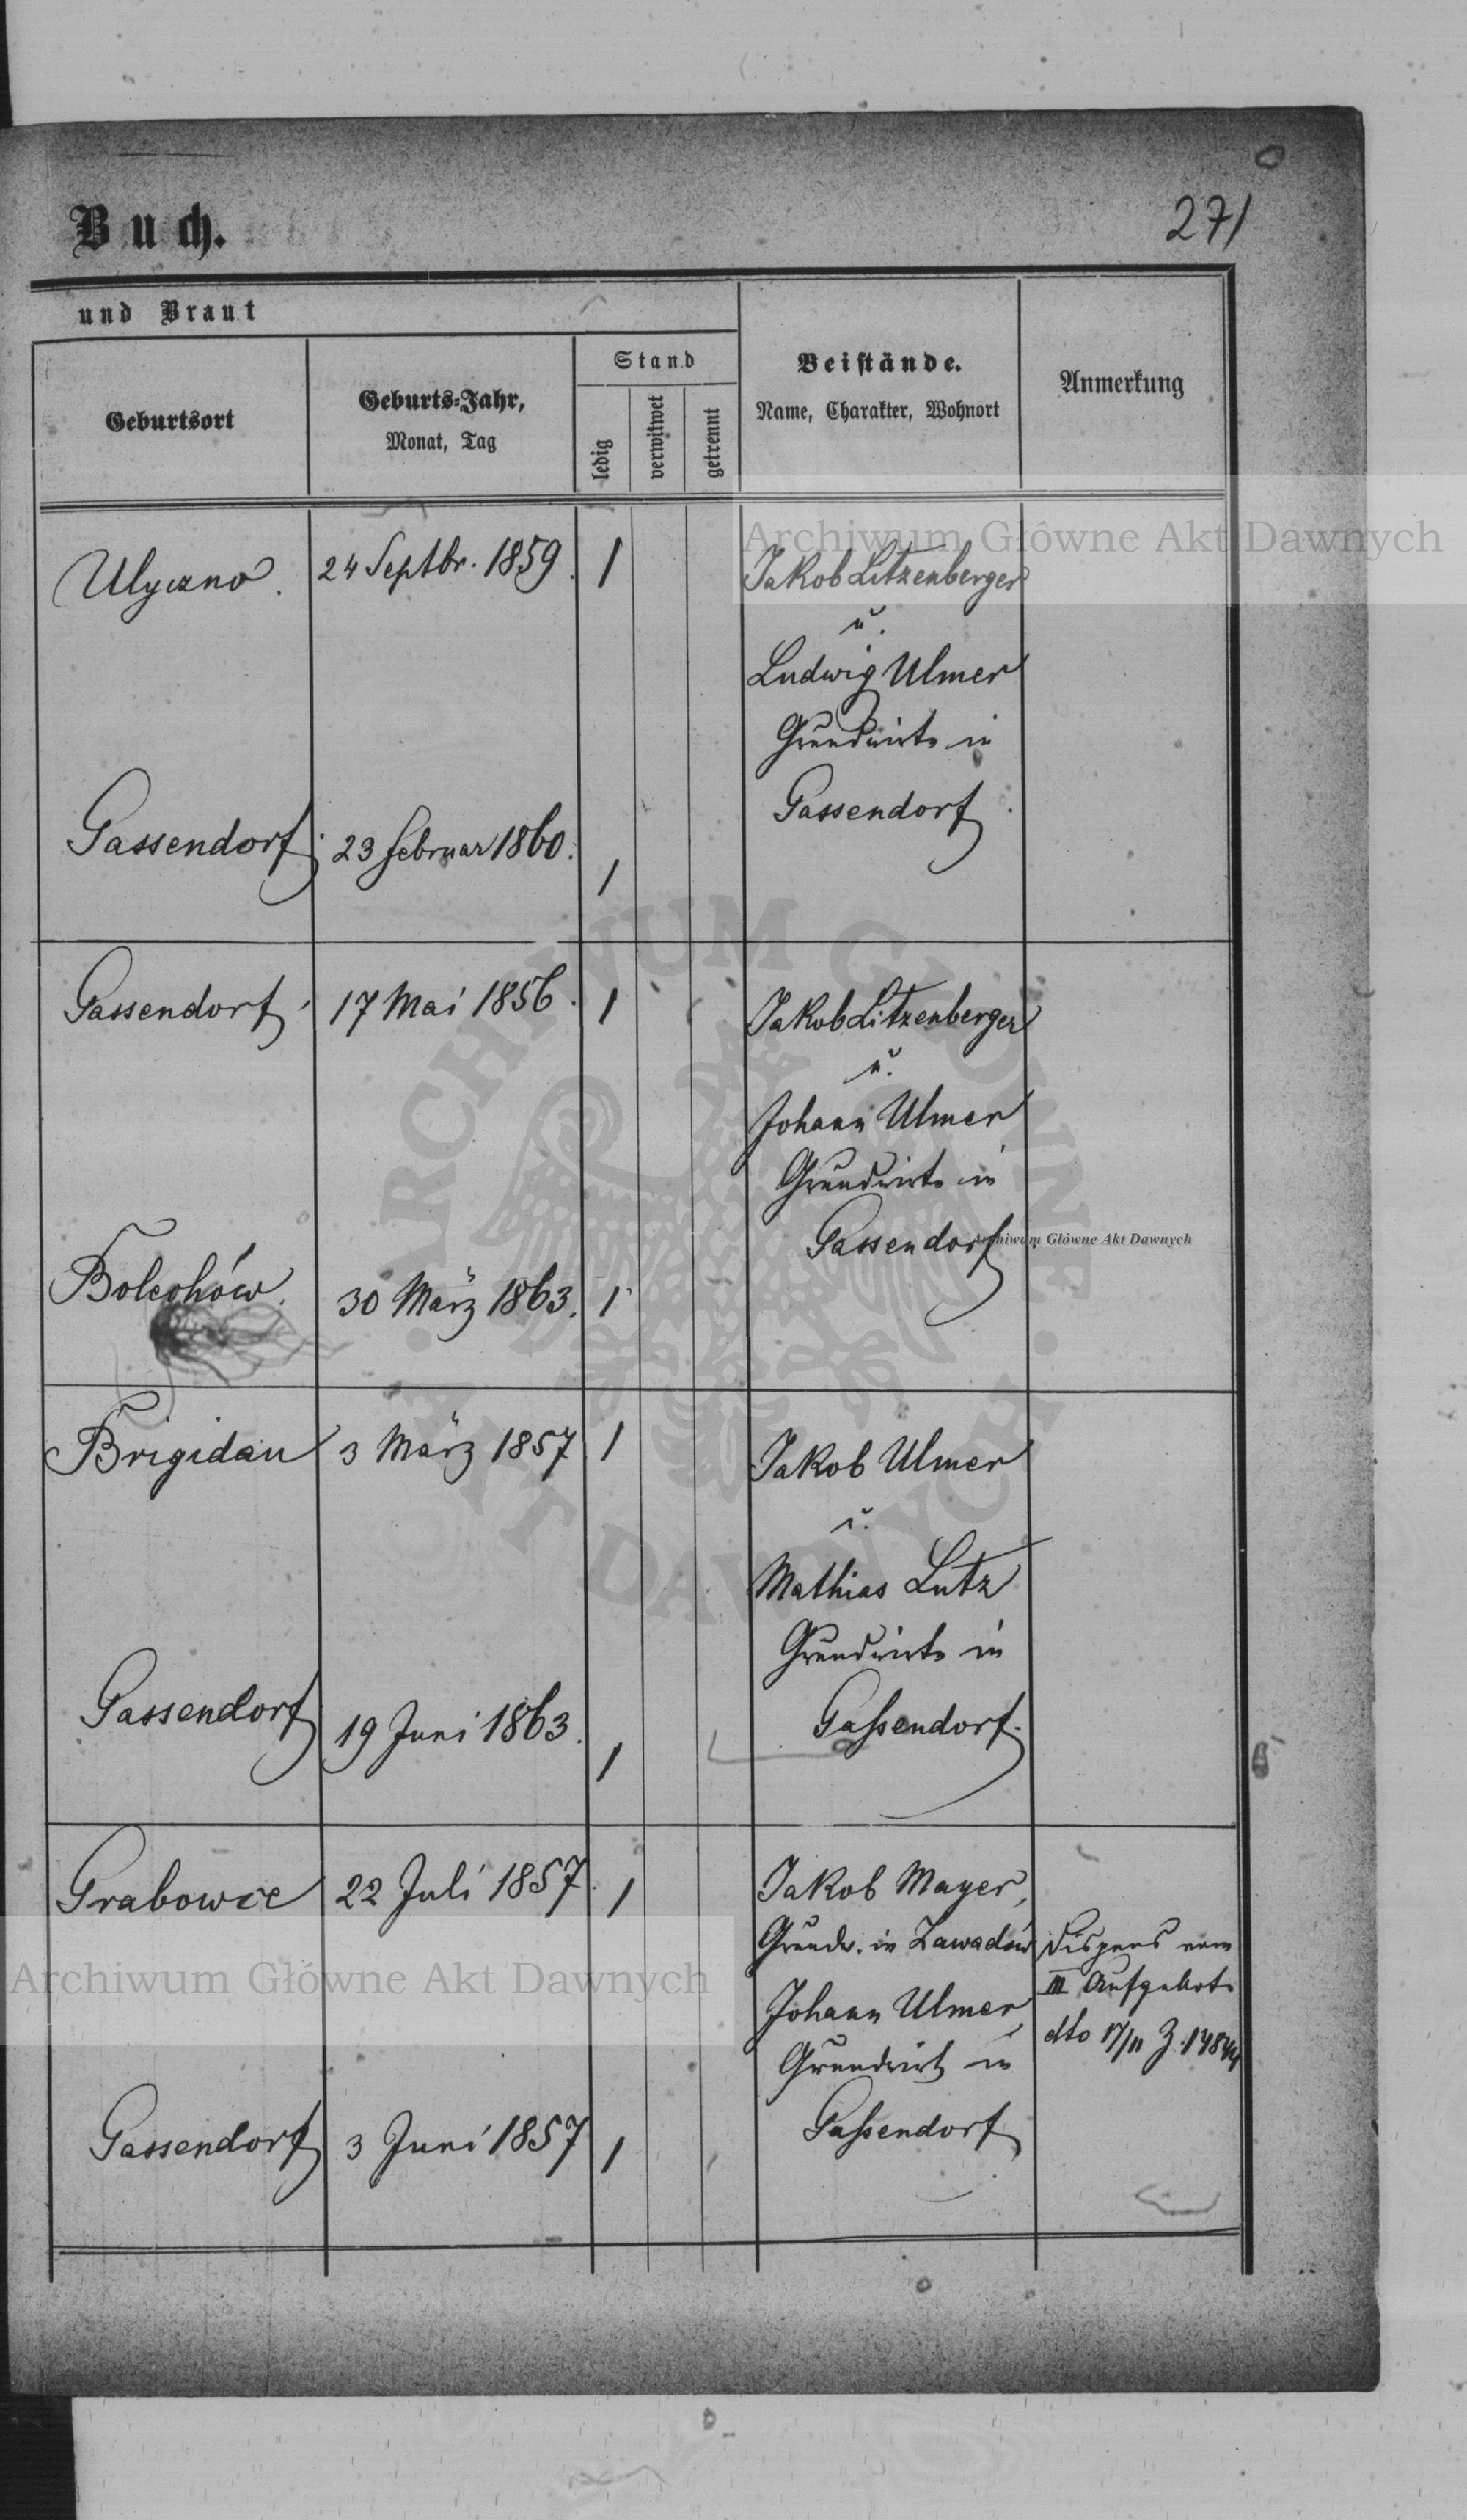 Buch.
271
und Braut
Geburtsort
Geburts-Jahr,
Monat, Tag
Stand
ledig
verwitwet
getrennt
Beistände.
Name, Charakter, Wohnort
Anmerkung
Archiwum Główne Akt Dawnych
Ulyczno.
24 Septbr. 1859.
1
Jakob Litzenberger
u.
Ludwig Ulmer
Grundwirte in
Gassendorf.
Gassendorf.
23 Februar 1860.
1
Gassendorf.
17 Mai 1856.
1
Jakob Litzenberger
u.
Johann Ulmer
Grundwirte in
Gassendorf
Archiwum Główne Akt Dawnych
Bolechów.
30 März 1863.
1
Brigidau
3 März 1857
1
Jakob Ulmer
u.
Mathias Lutz
Grundwirte in
Gaſsendorf.
Gassendorf
19 Juni 1863.
1
Grabowce
22 Juli 1857.
1
Jakob Mayer,
Grundw. in Zawadów
Johann Ulmer,
Grundwirt in
Gaſsendorf
Dispens vom
III Aufgebote
dto 17/11 Z. 14844
Archiwum Główne Akt Dawnych
Gassendorf
3 Juni 1857
1
ARCHIWUM GŁÓWNE
AKT DAWNYCH